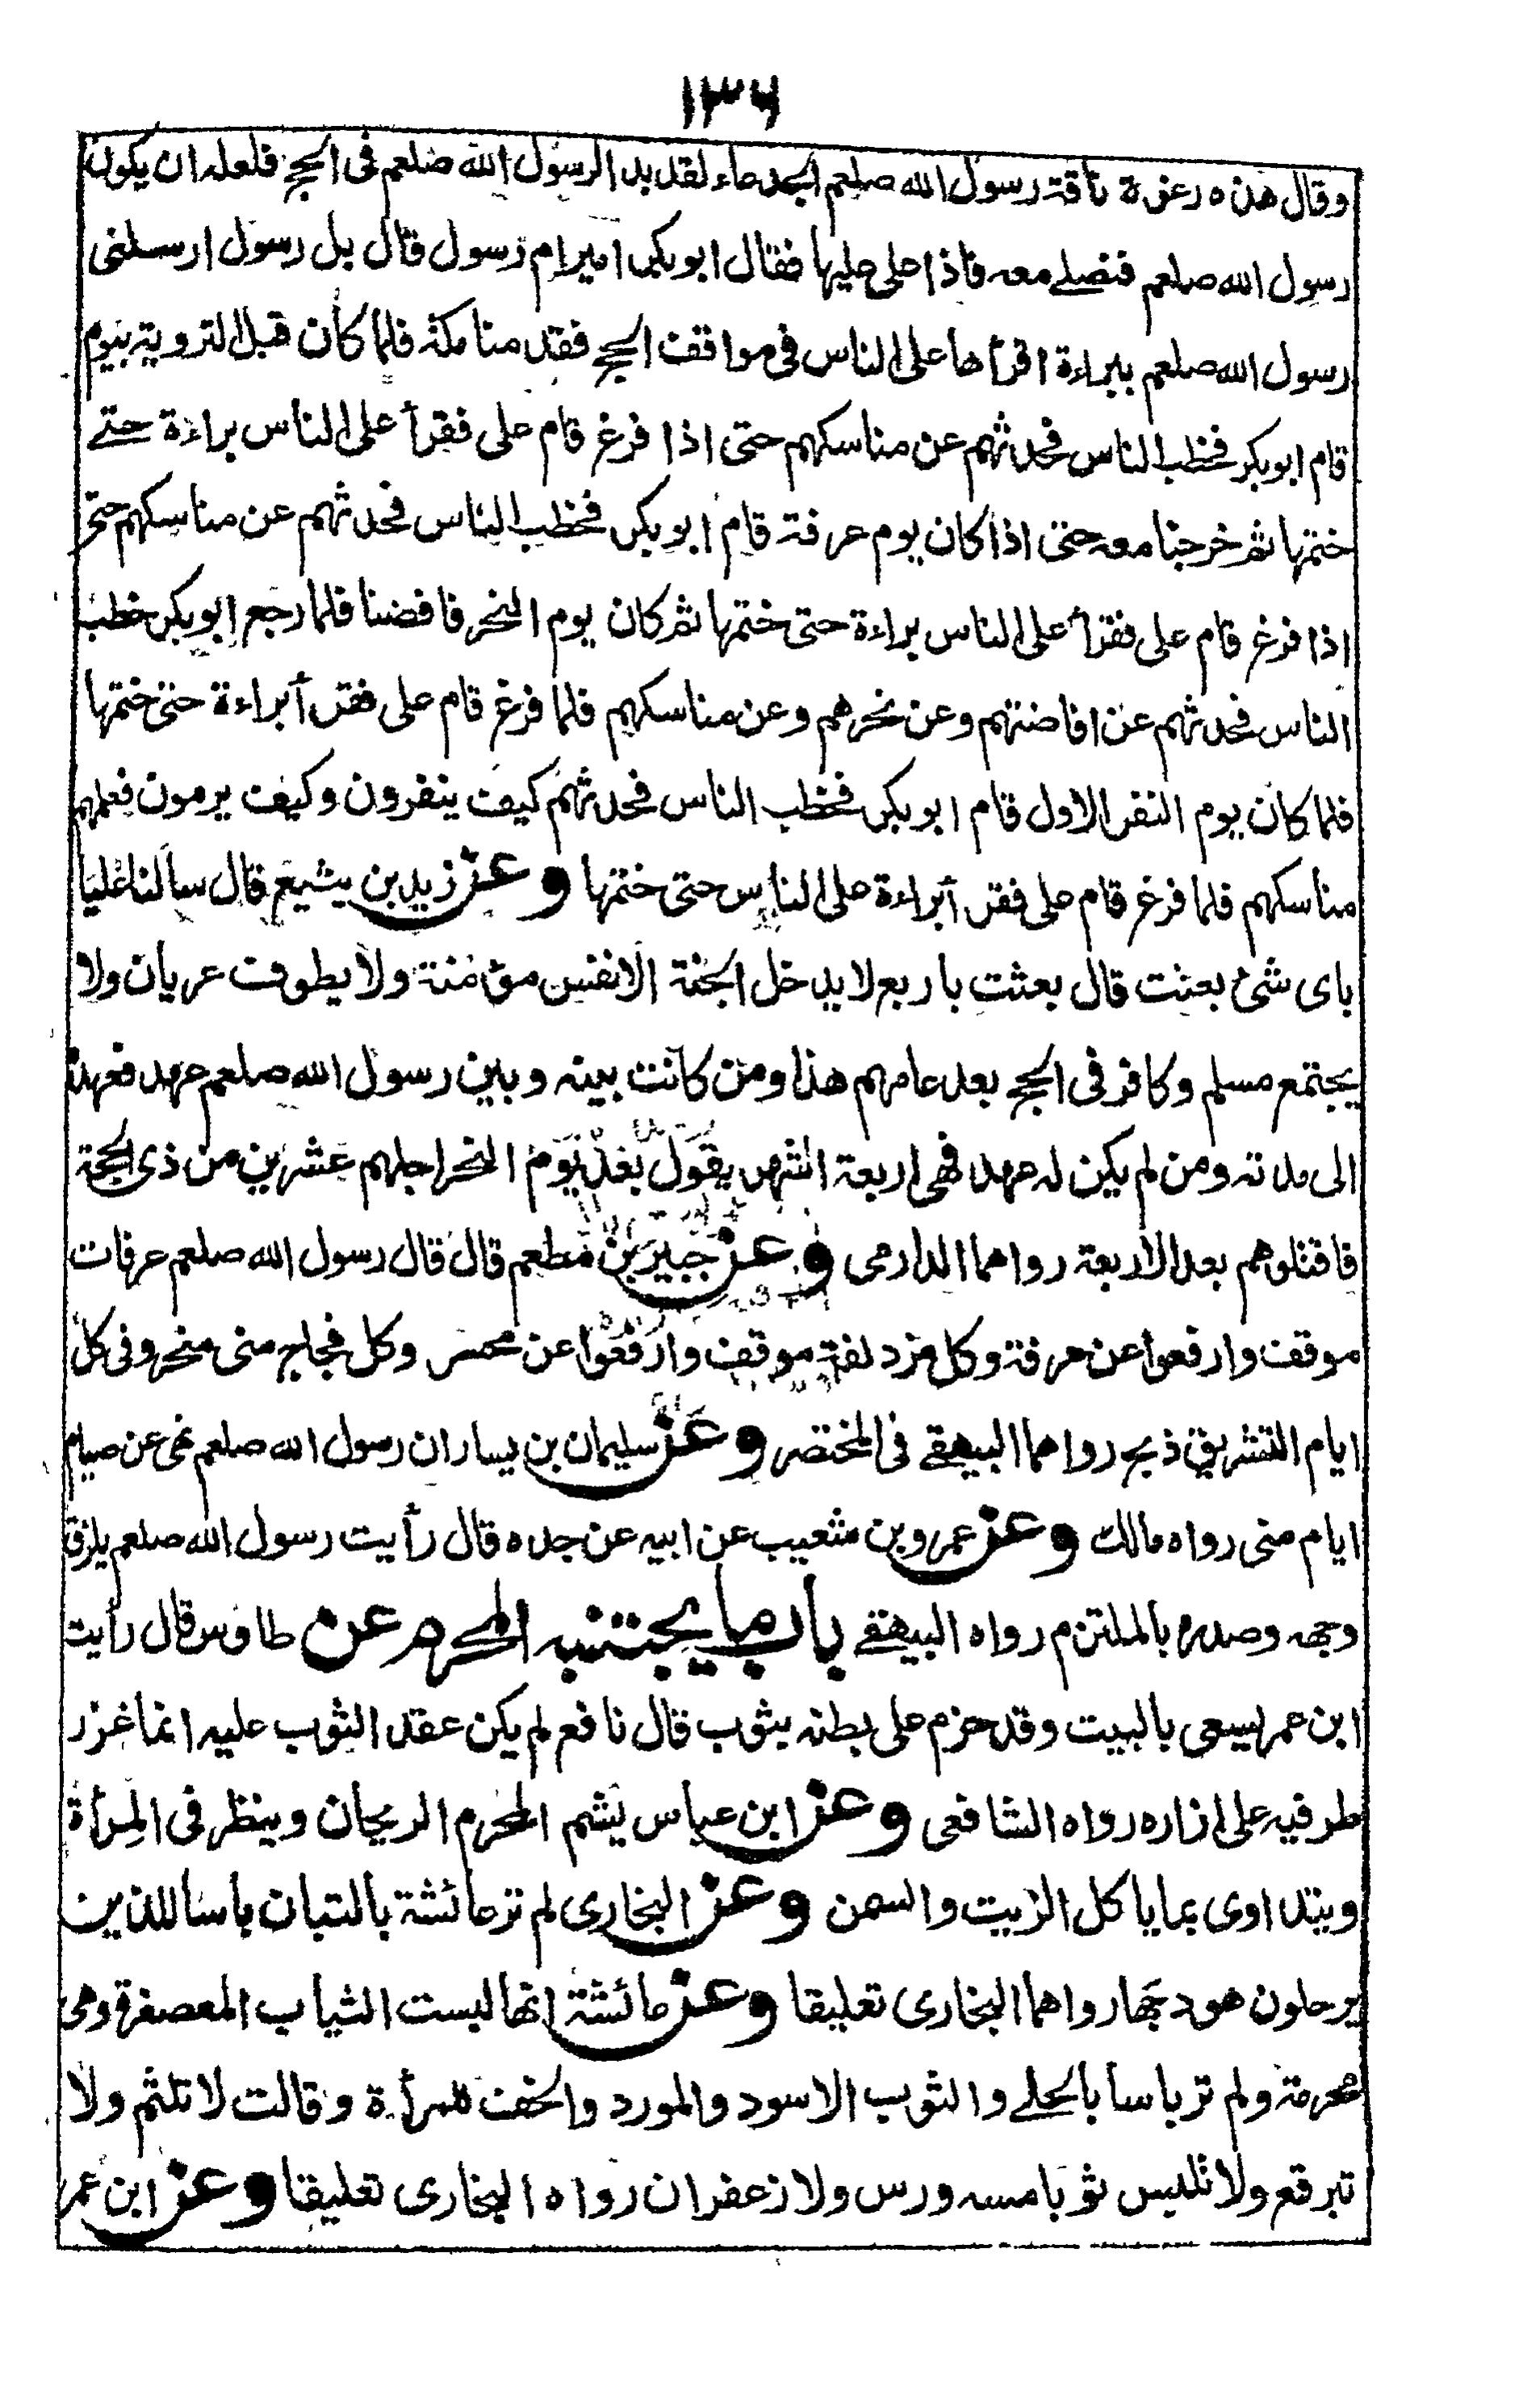 ١٣٦
وقال هذه رغوة ناقة رسول الله صلعم الجدعاء لقد بدا لرسول الله صلعم فى الحج فلعله ان يكون
رسول الله صلعم فنصلے معه فاذا على عليها فقال ابو بكر امير ام رسول قال بل رسول ارسلنى
رسول الله صلعم ببراءة اقرأها على الناس فى مواقف الحج فقدمنا مكة فلما كان قبل التروية بيوم
قام ابو بكر فخطب الناس فحدثهم عن مناسكهم حتى اذا فرغ قام على فقرأ على الناس براءة حتے
ختمها ثم خرجنا معه حتى اذا كان يوم عرفة قام ابو بكر فخطب الناس فحدثهم عن مناسكهم حتى
اذا فرغ قام على فقرأ على الناس براءة حتى ختمها ثم كان يوم النحر فافضنا فلما رجع ابو بكر خطب
الناس فحدثهم عن افاضتهم وعن نحرهم وعن مناسكهم فلما فرغ قام على فقرأ براءة حتى ختمها
فلما كان يوم النفر الاول قام ابو بكر فخطب الناس فحدثهم كيف ينفرون وكيف يرمون فعلمهم
مناسكهم فلما فرغ قام على فقرأ براءة على الناس حتى ختمها وعن زيد بن يثيع قال سألنا عليا
باى شئ بعثت قال بعثت باربع لا يدخل الجنة الا نفس مؤمنة ولا يطوف عريان ولا
يجتمع مسلم وكافر فى الحج بعد عامهم هذا ومن كانت بينه وبين رسول الله صلعم عهد فعهدة
الى مدته ومن لم يكن له عهد فهى اربعة اشهر يقول بعد يوم النحر اجلهم عشرين من ذى الحجة
فاقتلوهم بعد الاربعة رواهما الدارمى وعن جبير بن مطعم قال قال رسول الله صلعم عرفات
موقف وارفعوا عن عرفة وكل مزدلفة موقف وارفعوا عن محسر وكل فجاج منى منحر وفى كل
ايام التشريق ذبح رواهما البيهقے فى المختصر وعن سليمان بن يسار ان رسول الله صلعم نهى عن صيام
ايام منى رواه مالك وعن عمرو بن شعيب عن ابيه عن جده قال رأيت رسول الله صلعم يلزق
وجهه وصدره بالملتزم رواه البيهقے باب ما يجتنبه المحرم عن طاوس قال رأيت
ابن عمر يسعى بالبيت وقد حزم على بطنه بثوب قال نافع لم يكن عقد الثوب عليه انما غرز
طرفيه على ازاره رواه الشافعى وعن ابن عباس يشم المحرم الريحان وينظر فى المرأة
ويتداوى بما ياكل الزيت والسمن وعن البخارى لم تر عائشة بالتبان باسا للذين
يرحلون هودجها رواهما البخارى تعليقا وعن عائشة انها لبست الثياب المعصفرة وهى
محرمة ولم تر باسا بالحلے والثوب الاسود والمورد والخف للمرأة وقالت لا تلثم ولا
تبرقع ولا تلبس ثوبا مسه ورس ولا زعفران رواه البخارى تعليقا وعن ابن عمر